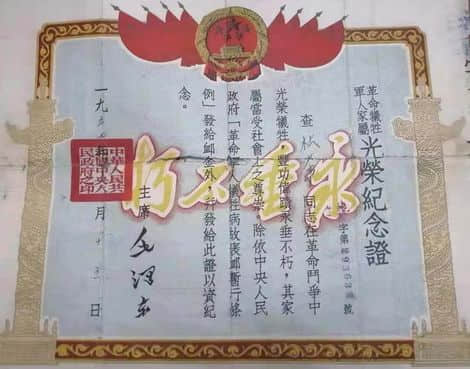 革命犧牲
軍人家屬
光榮紀念證
字第 號
查 同志在革命鬥爭中
光榮犧牲,豐功偉績永垂不朽,其家
屬當受社會上之尊崇。除依中央人民
政府「革命軍人犧牲病故褒卹暫行條
例」發給卹金外,並發給此證以資紀
念。
主席 毛澤東
一九五 年 月十 日
中華人民共
和國中央人
民政府之印
永垂不朽